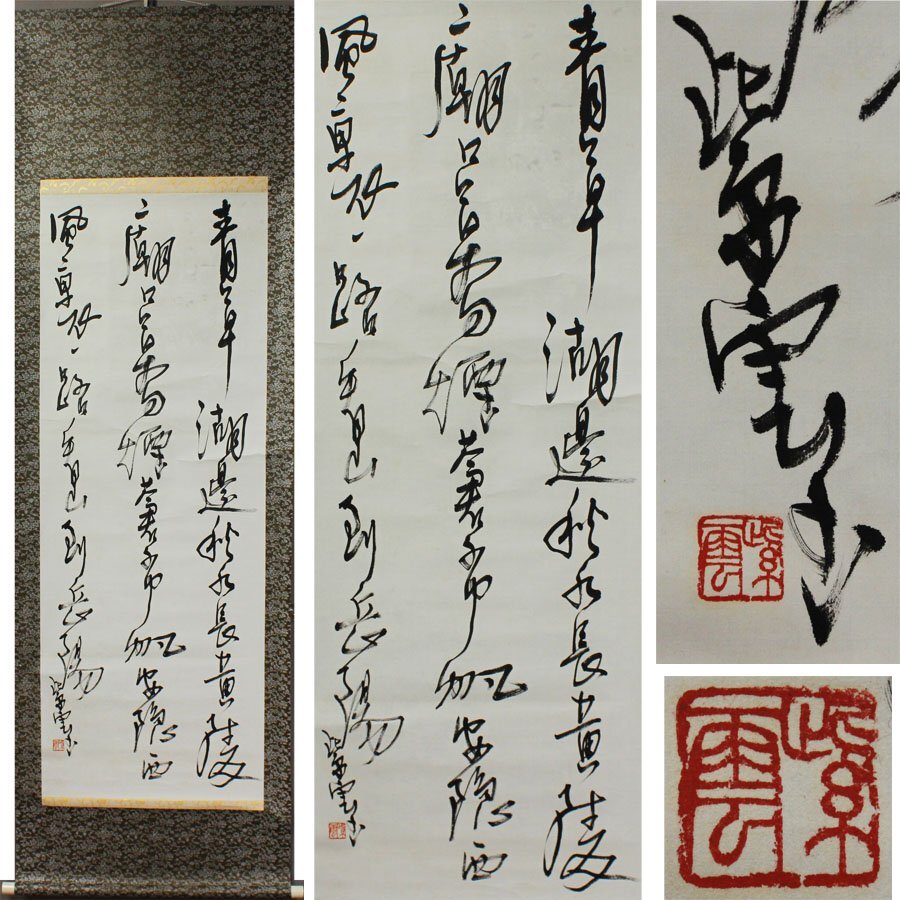 青草湖邊秋水長黄陵
廟口暮煙蒼布帆安隱西
風裏一路看山到岳陽
紫雲書
紫雲